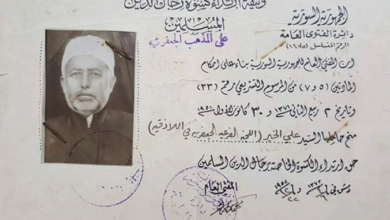 وثيقة ارتداء كسوة رجال الدين
المسلمين
على المذهب الجعفري
الجمهورية السورية
دائرة الفتوى العامة
الرقم المتسلسل (١٦٤٥)
ان المفتي العام للجمهورية السورية بناء على احكام
المادتين (٥ و ٧) من المرسوم التشريعي رقم (٣٣)
وتاريخ ٢ ربيع الثاني ١٣٧١ و ٣٠ كانون الاول ١٩٥١
منح حاملها السيد علي الخير الجعفري في اللاذقية
حق ارتداء الكسوة الخاصة برجال الدين المسلمين
دمشق في
المفتي العام